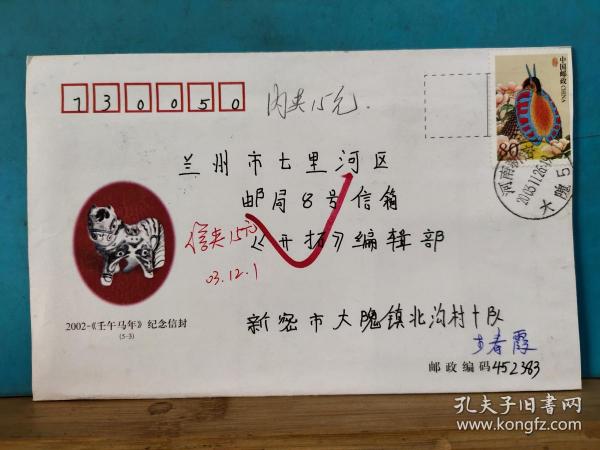 730050
内夹15元.
中国邮政 CHINA
80
河南
2003.11.26.
大隗
兰州市七里河区
邮局8号信箱
《开拓》编辑部
信夹15元
03.12.1
2002-《壬午马年》纪念信封
(5-3)
新密市大隗镇北沟村十队
春霞
邮政编码 452383
孔夫子旧书网
www.kongfz.com